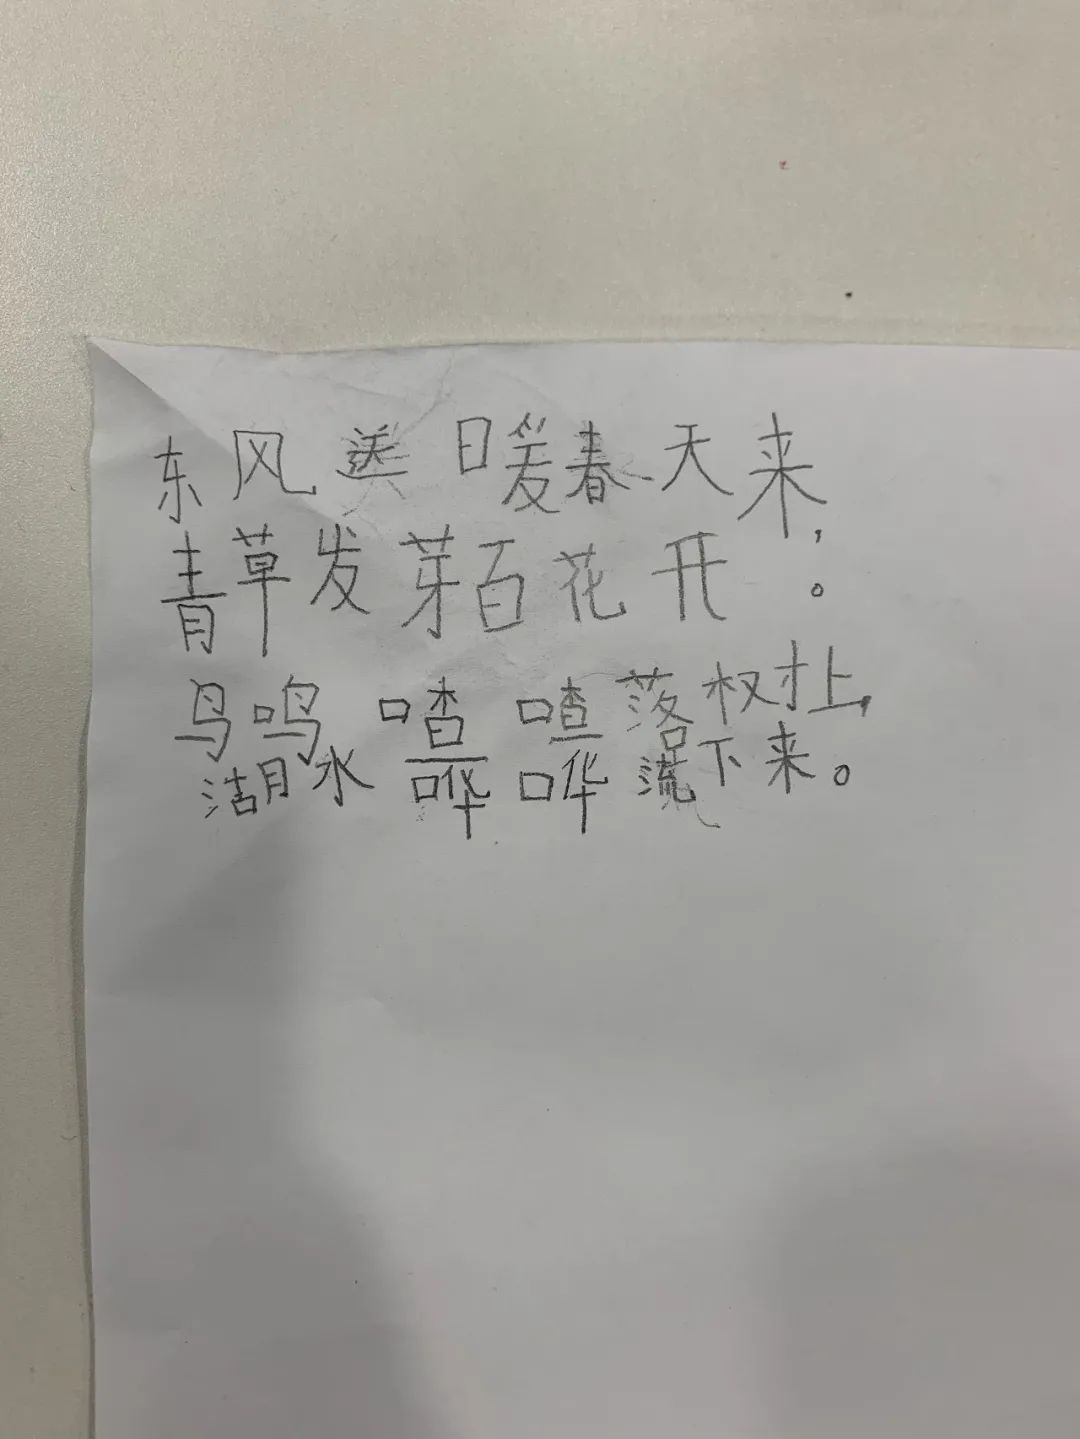 东风送暖春天来,
青草发芽百花开。
鸟鸣喳喳落树上,
湖水哗哗流下来。